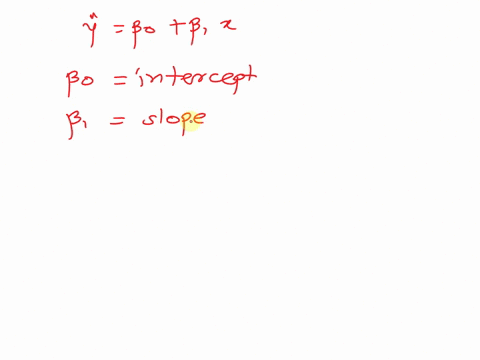 ŷ = β0 + β1 x
β0 = intercept
β1 = slope